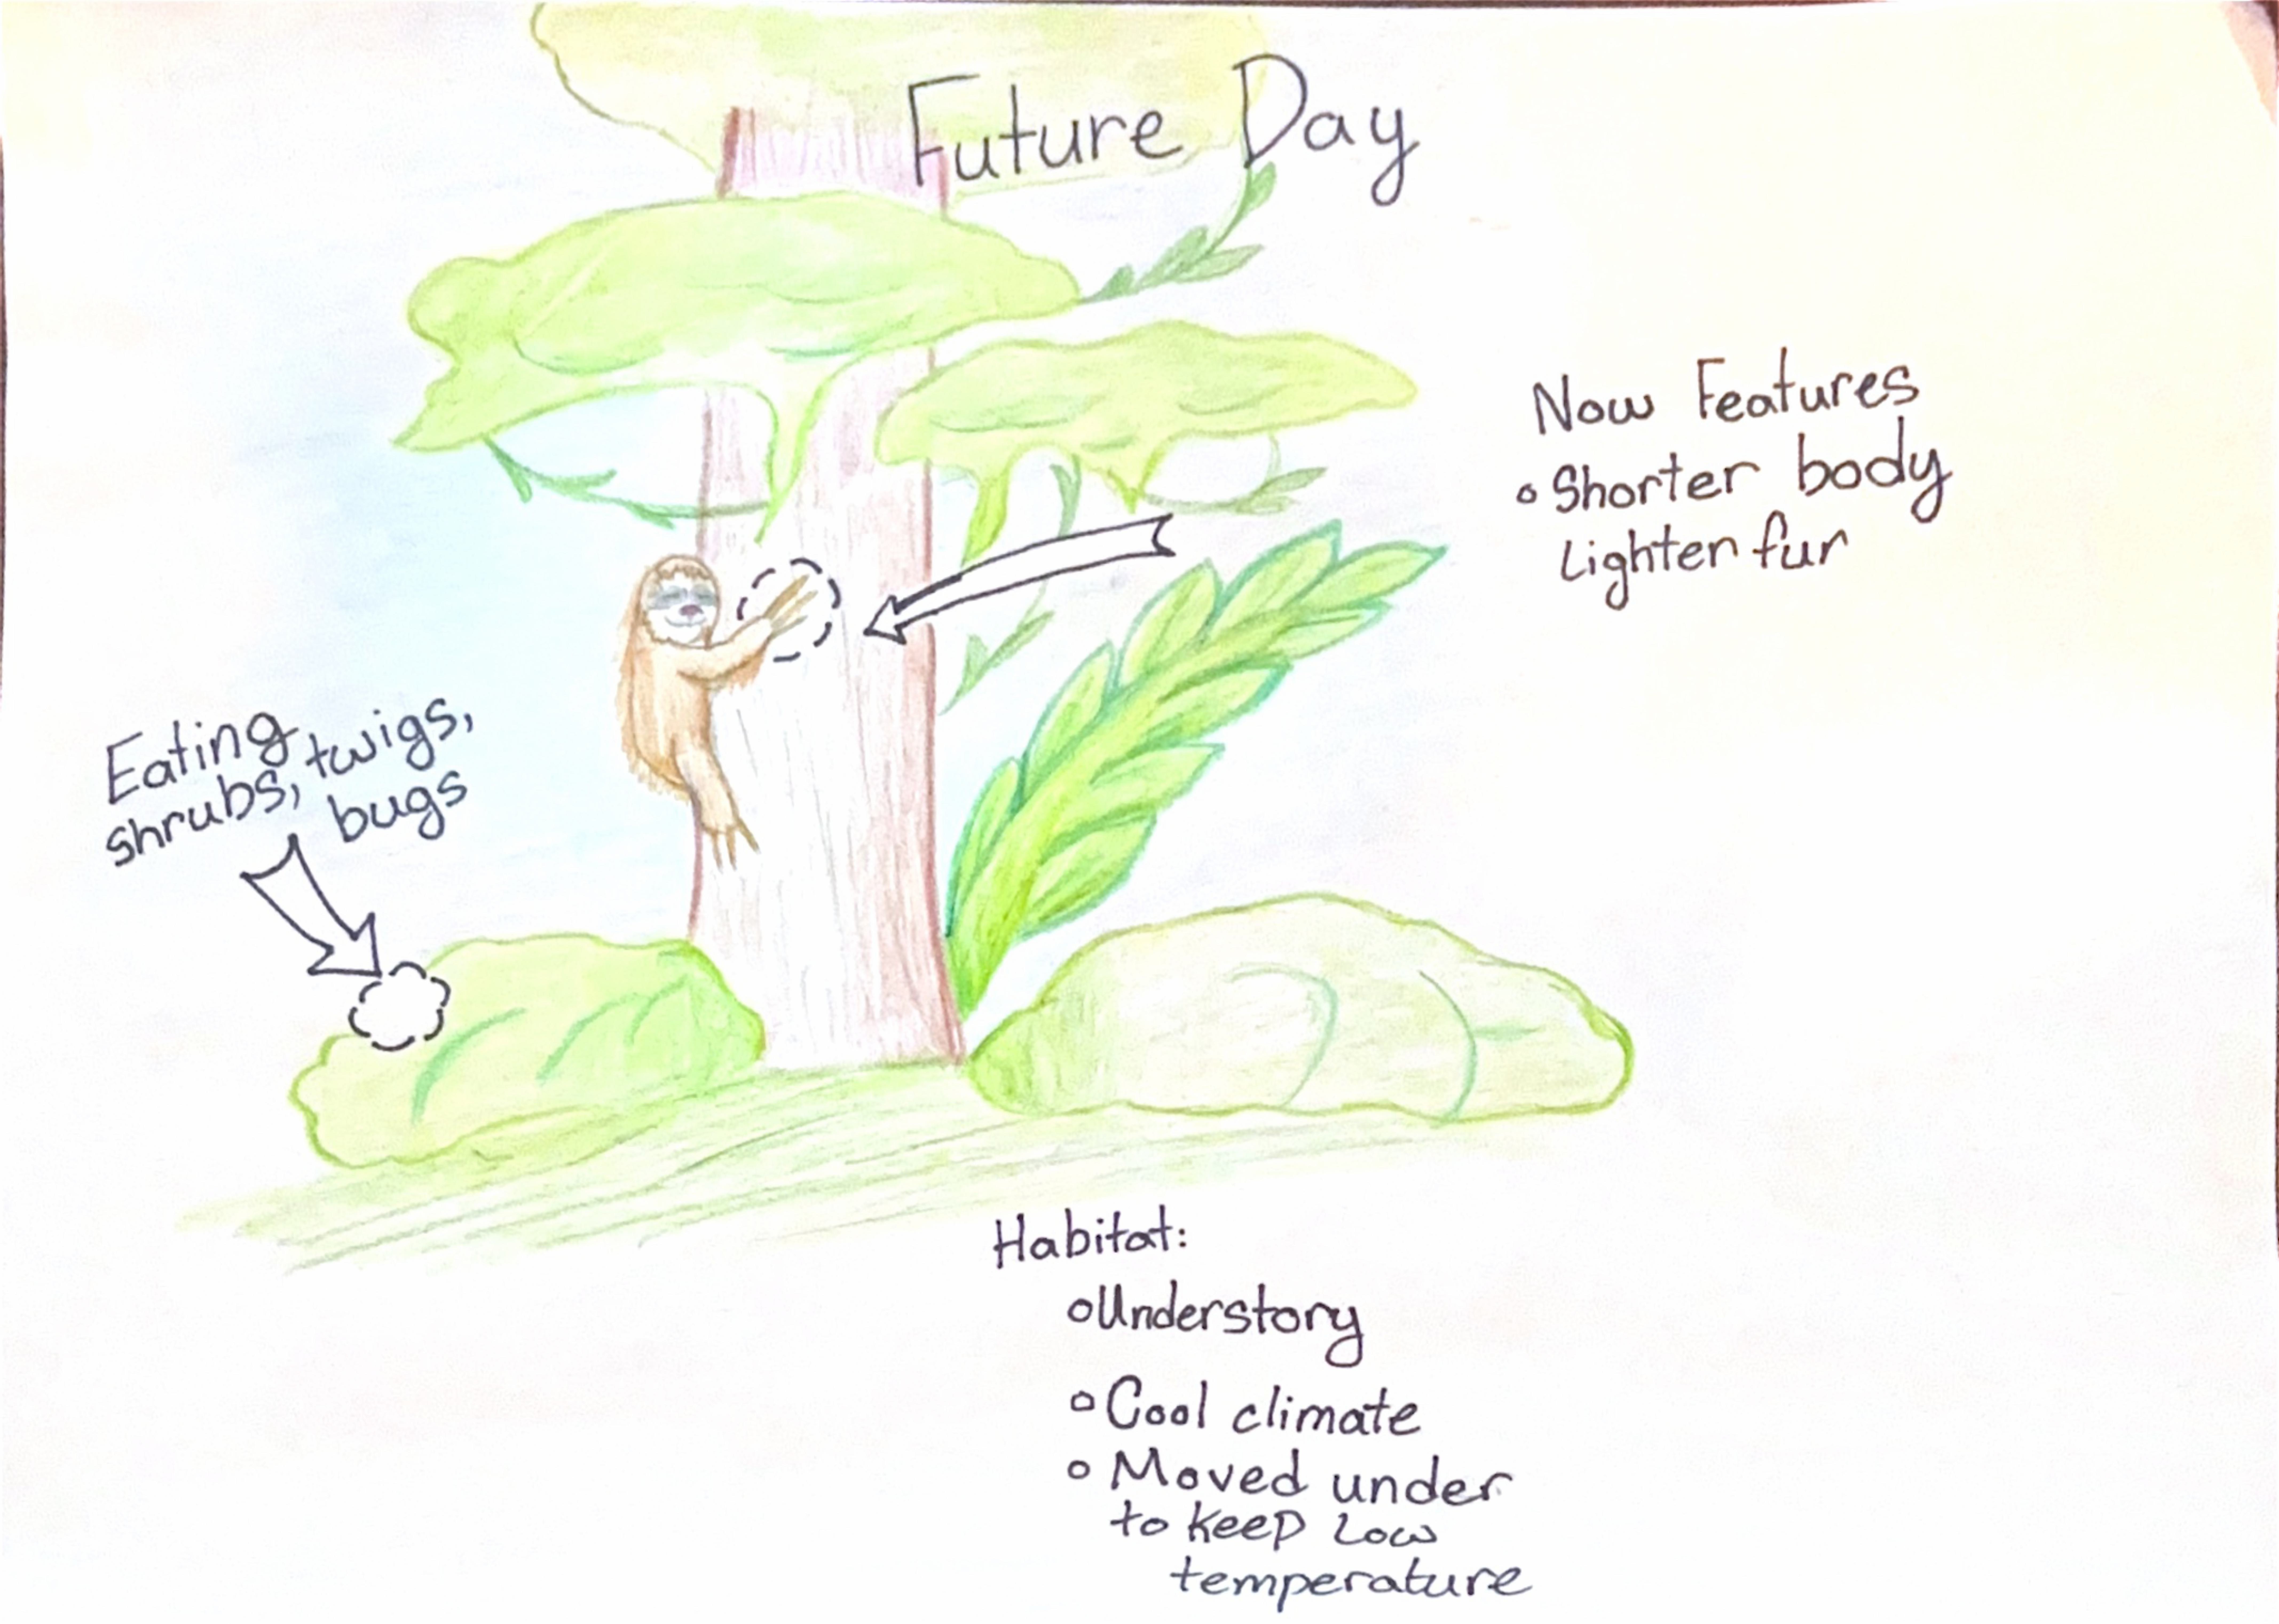 Future Day
Now Features
• Shorter body
Lighter fur
Eating
shrubs, twigs,
bugs
Habitat:
• Understory
• Cool climate
• Moved under
to keep low
temperature